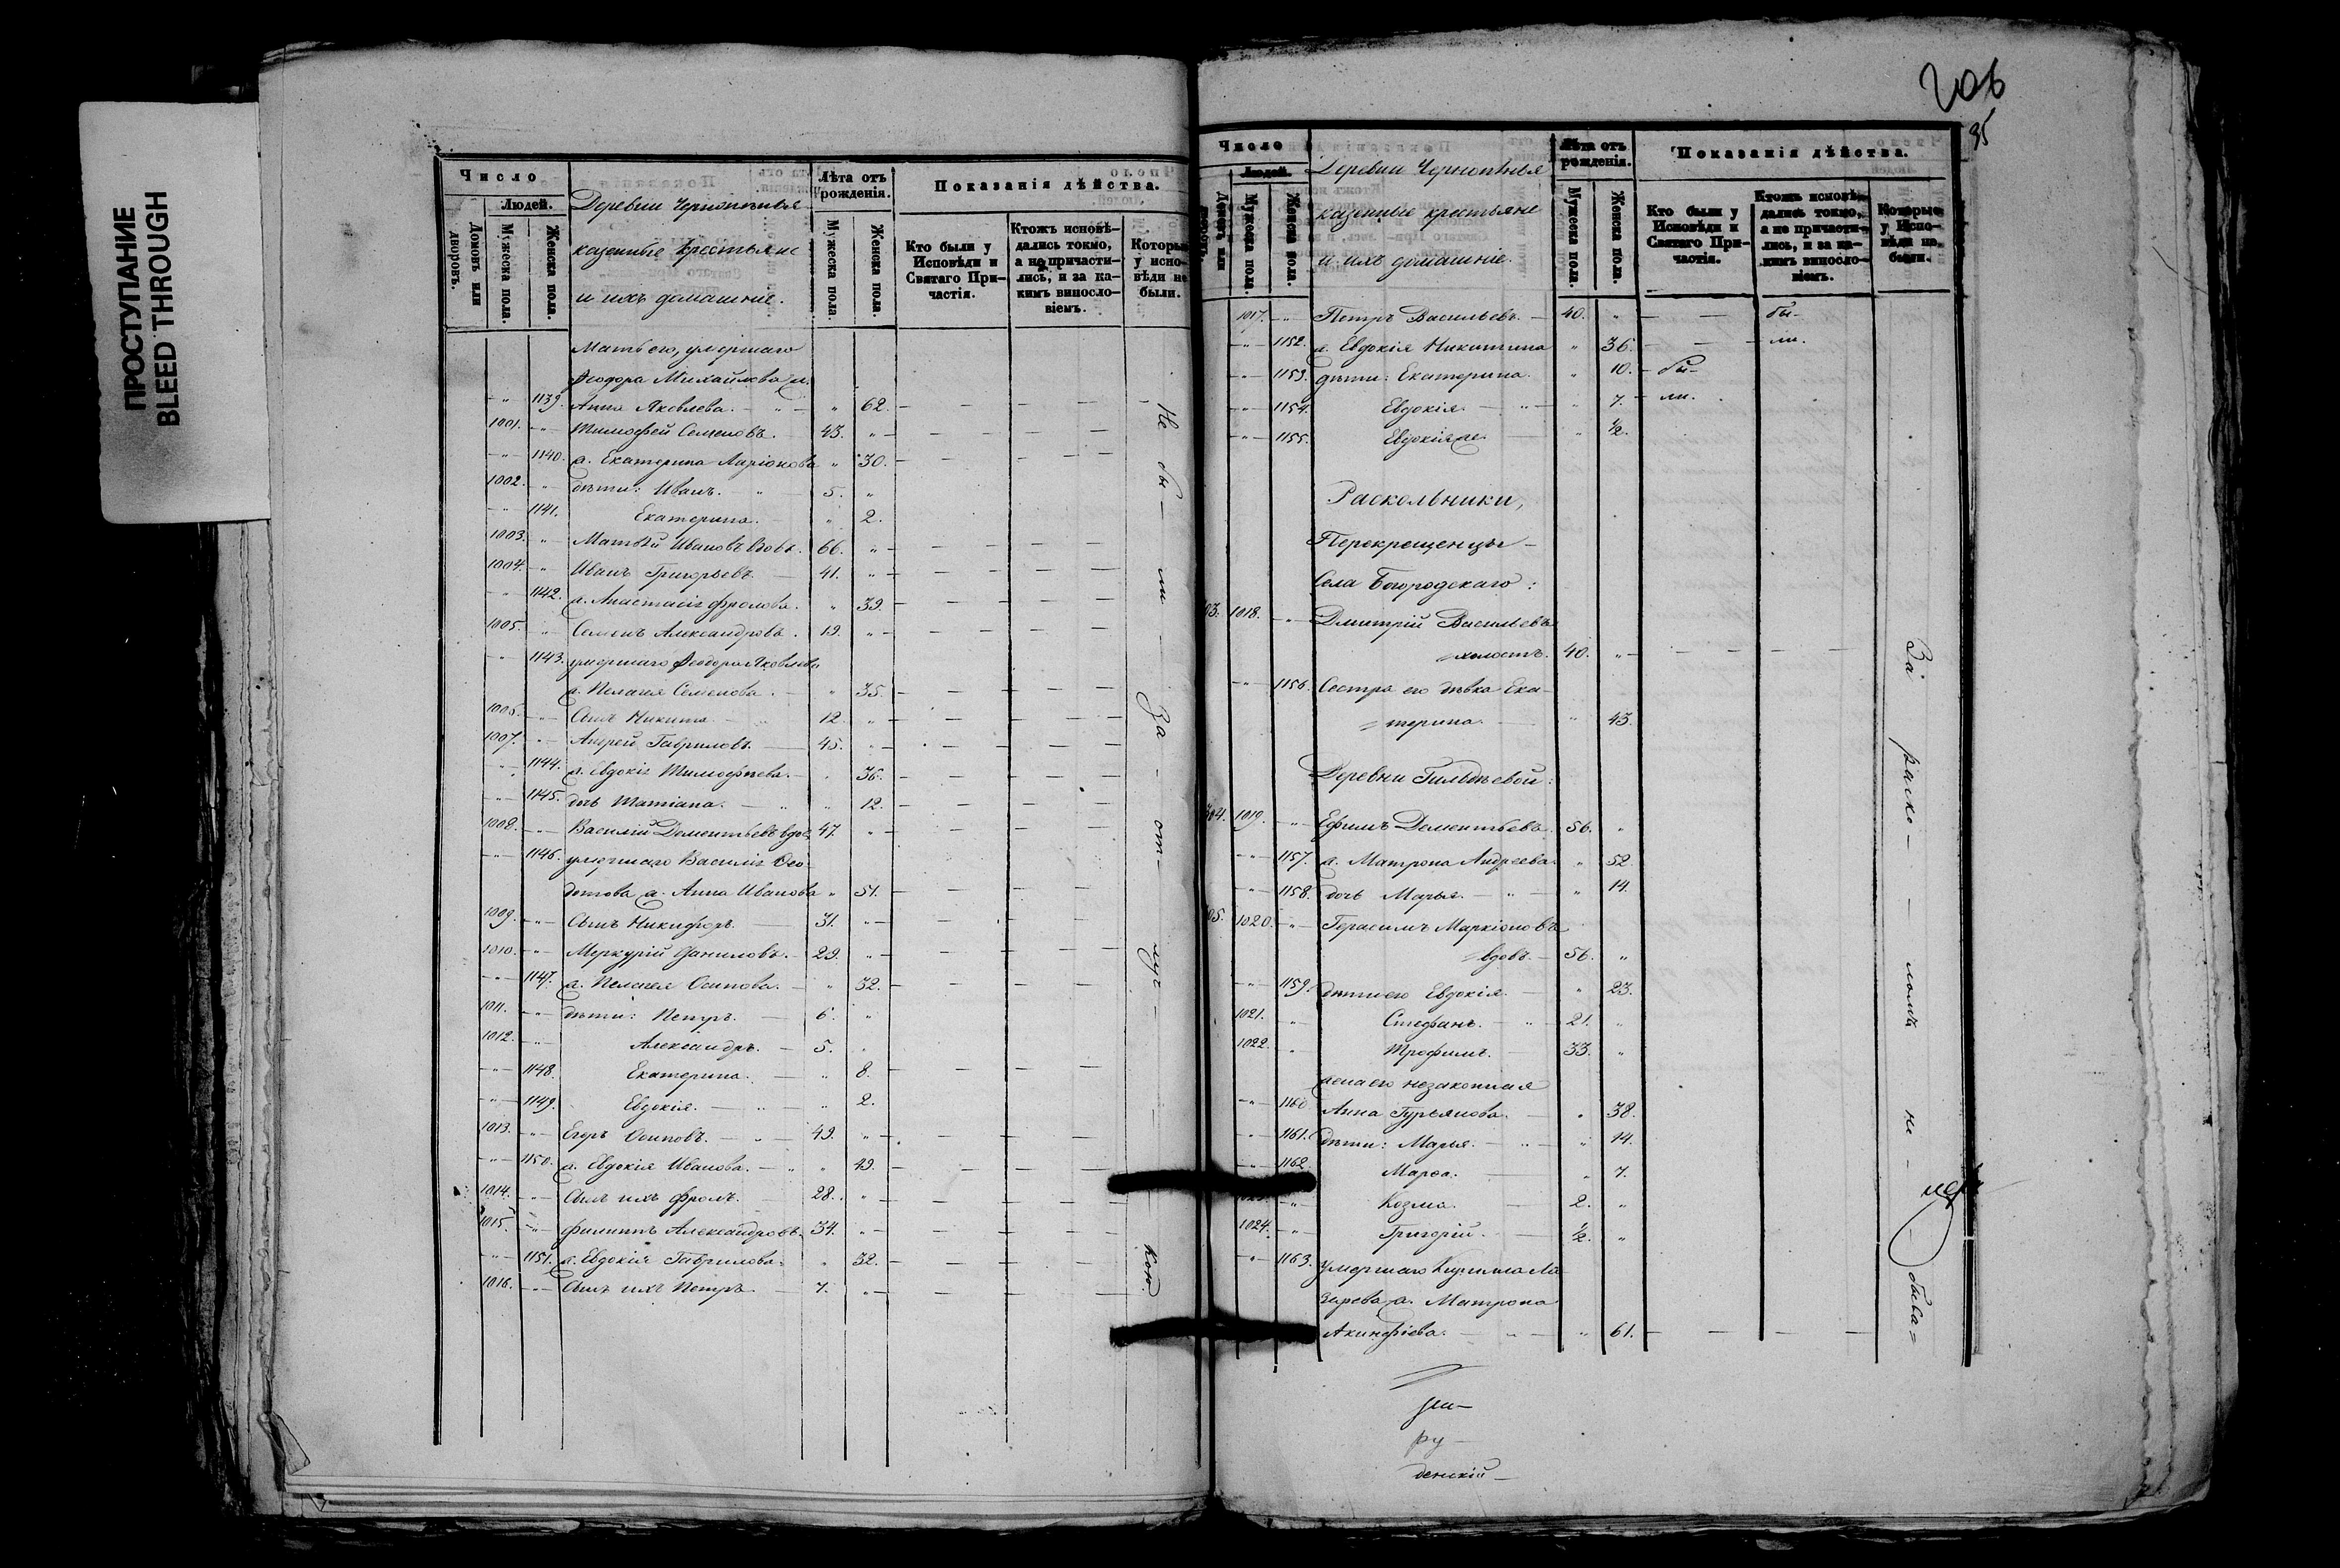 ПРОСТУПАНИЕ
BLEED THROUGH
Число
Людей.
Домовъ или дворовъ.
Мужеска пола.
Женска пола.
Деревни Чернопенья
казенные крестьяне
и ихъ домашніе.
Лѣта отъ рожденія.
Мужеска пола.
Женска пола.
Показанія дѣйства.
Кто были у Исповѣди и Святаго Причастія.
Ктожъ исповѣдались токмо, а не причастились, и за какимъ винословіемъ.
Которые у исповѣди не были.
Мать его, умершаго
Ѳеодора Михайлова ж.
1139. Анна Яковлева. 62.
1001. Тимофей Семеновъ. 43.
1140. ж. Екатерина Ларіонова 30.
1002. дѣти: Иванъ. 5.
1141. Екатерина. 2.
1003. Матвѣй Ивановъ вдовъ. 66.
1004. Иванъ Григорьевъ. 41.
1142. ж. Анастасія Фролова. 39.
1005. Семенъ Александровъ. 19.
1143. умершаго Ѳеодора Яковлева
ж. Пелагея Семенова. 35.
1006. Сынъ Никита. 12.
1007. Андрей Гавриловъ. 45.
1144. ж. Евдокія Тимофѣева. 36.
1145. дочь Татіана. 12.
1008. Василій Дементьевъ вдов. 47.
1146. умершаго Василія Ѳео-
дотова ж. Анна Иванова 51.
1009. Сынъ Никифоръ. 31.
1010. Меркурій Даниловъ. 29.
1147. ж. Пелагея Осипова. 32.
1011. дѣти: Петръ. 6.
1012. Александръ. 5.
1148. Екатерина. 8.
1149. Евдокія. 2.
1013. Егоръ Осиповъ. 49.
1150. ж. Евдокія Иванова. 49.
1014. Сынъ ихъ Фролъ. 28.
1015. Филиппъ Александровъ. 34.
1151. ж. Евдокія Гаврилова. 32.
1016. Сынъ ихъ Петръ 7.
Не бы — ли — За — от — луч — кою.
206
95
Число
Людей.
Домовъ или дворовъ.
Мужеска пола.
Женска пола.
Деревни Чернопенья
казенные крестьяне
и ихъ домашніе.
Лѣта отъ рожденія.
Мужеска пола.
Женска пола.
Показанія дѣйства.
Кто были у Исповѣди и Святаго Причастія.
Ктожъ исповѣдались токмо, а не причастились, и за какимъ винословіемъ.
Которые у Исповѣди не были.
1017. Петръ Васильевъ. 40. бы-
1152. ж. Евдокія Никитина 36. ли.
1153. дѣти: Екатерина. 10. бы-
1154. Евдокія. 7. ли.
1155. Евдокія же. ½.
Раскольники,
Перекрещенцы —
Села Богородскаго:
1018. Дмитрій Васильевъ
холостъ. 40.
1156. Сестра его дѣвка Ека-
терина. 43.
Деревни Гильдѣевой:
304. 1019. Ефимъ Дементьевъ. 56.
1157. ж. Матрона Андреева. 52
1158. дочь Марья. 14.
1020. Герасимъ Маркіоновъ
вдовъ. 56.
1159. дѣти его Евдокія. 23.
1021. Стефанъ. 21.
1022. Трофимъ. 33.
жена его незаконная
1160 Анна Гурьянова. 38.
1161. дѣти: Марья. 14.
1162. Марѳа. 7.
Козма. 2.
1024. Григорій. ½.
1163. умершаго Кирилла Ла
зарева ж. Матрона
Акинфіева. 61.
За раско — ломъ не — быва=